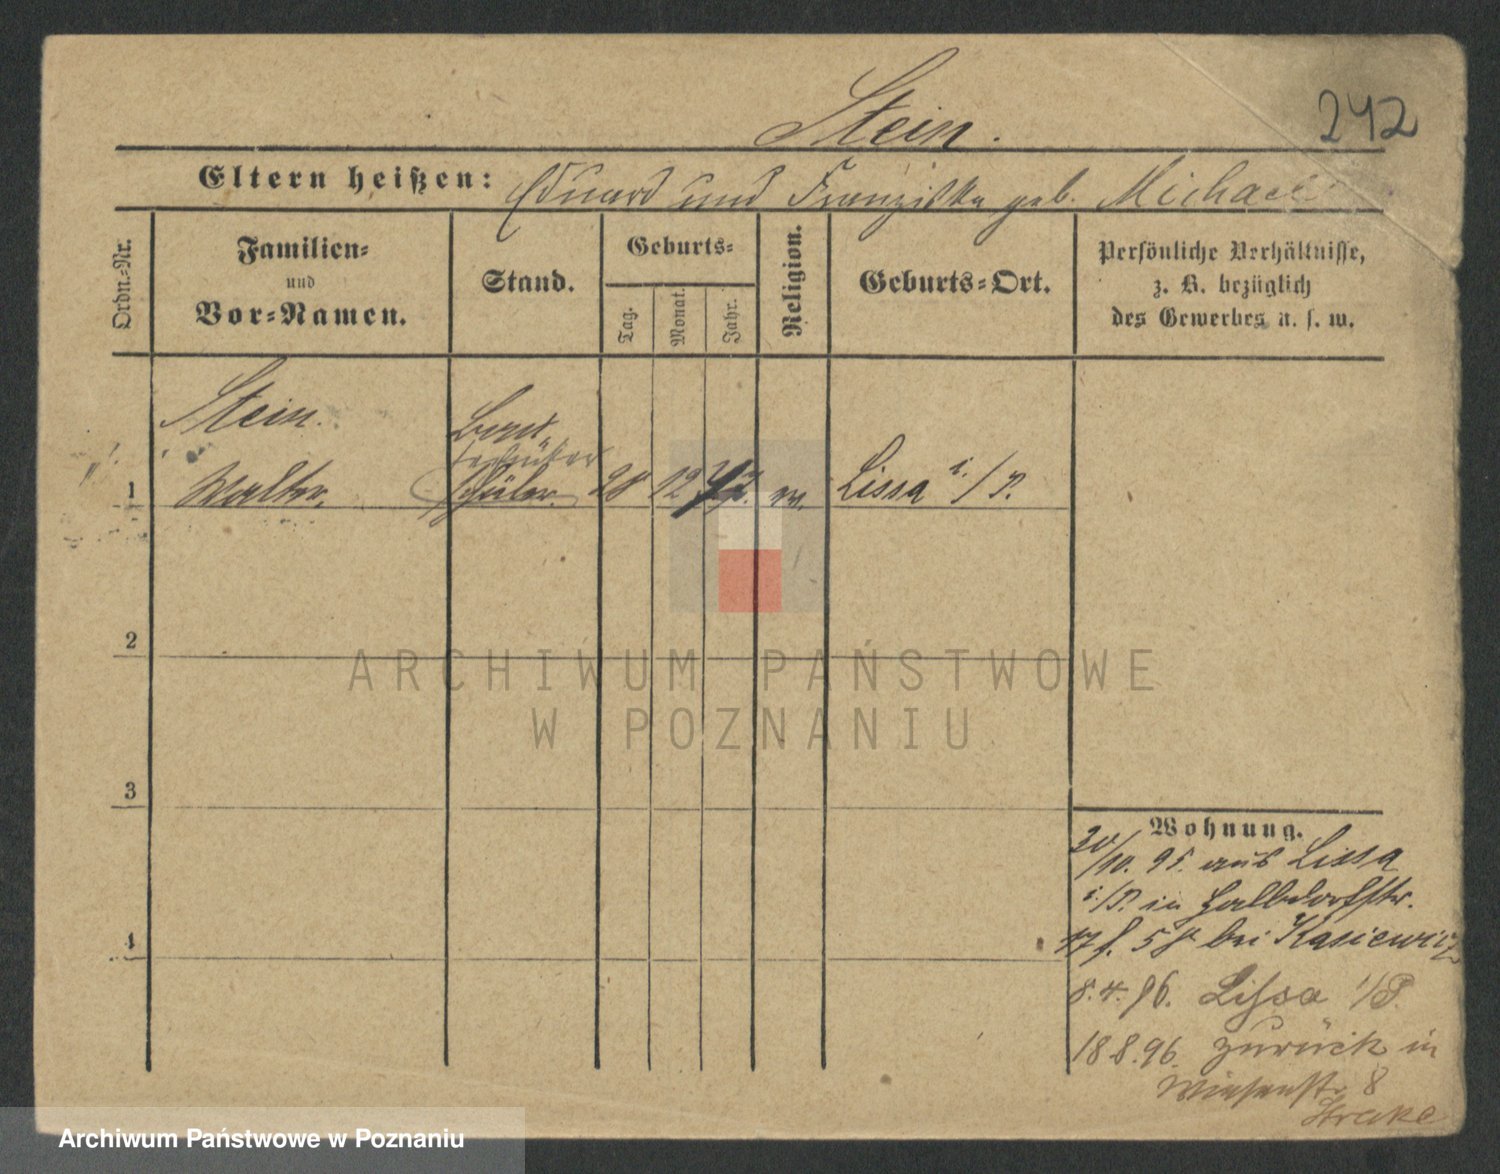 242
Stein.
Eltern heißen: Eduard und Franziska geb. Michaeli
Ordn.-Nr.
Familien-
und
Vor-Namen.
Stand.
Geburts-
Tag.
Monat.
Jahr.
Religion.
Geburts-Ort.
Persönliche Verhältnisse,
z. B. bezüglich
des Gewerbes u. s. w.
Stein.
1 Walter. Schüler. 28 12 77. Lissa i./P.
2
3
4
Wohnung.
20/10. 95. aus Lissa
i./P. in Halbdorfstr.
17 bei Kasiewicz
8. 4. 96. Lissa i/P.
18.8.96. zurück in
Wiesenstr. 8
ARCHIWUM PAŃSTWOWE
W POZNANIU
Archiwum Państwowe w Poznaniu